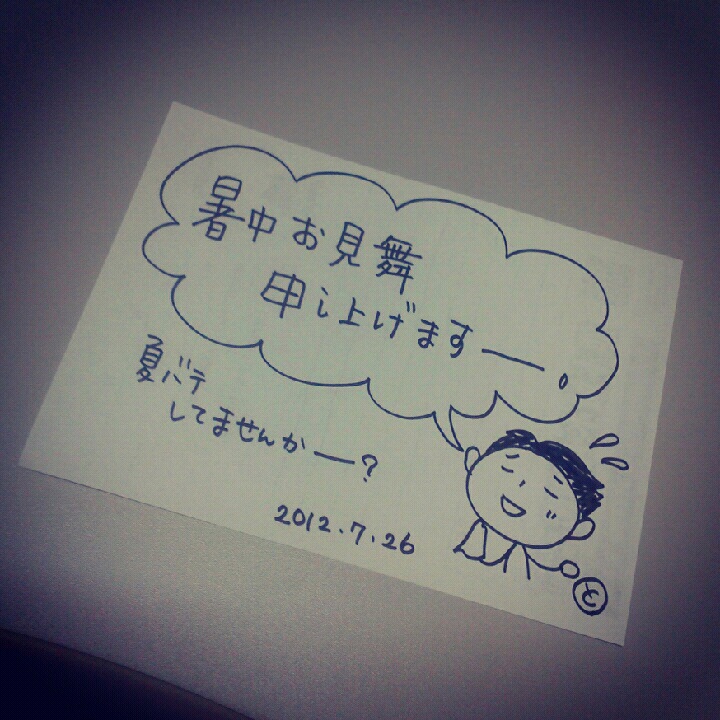 暑中お見舞
申し上げますー。
夏バテ
してませんかー?
2012.7.26
と